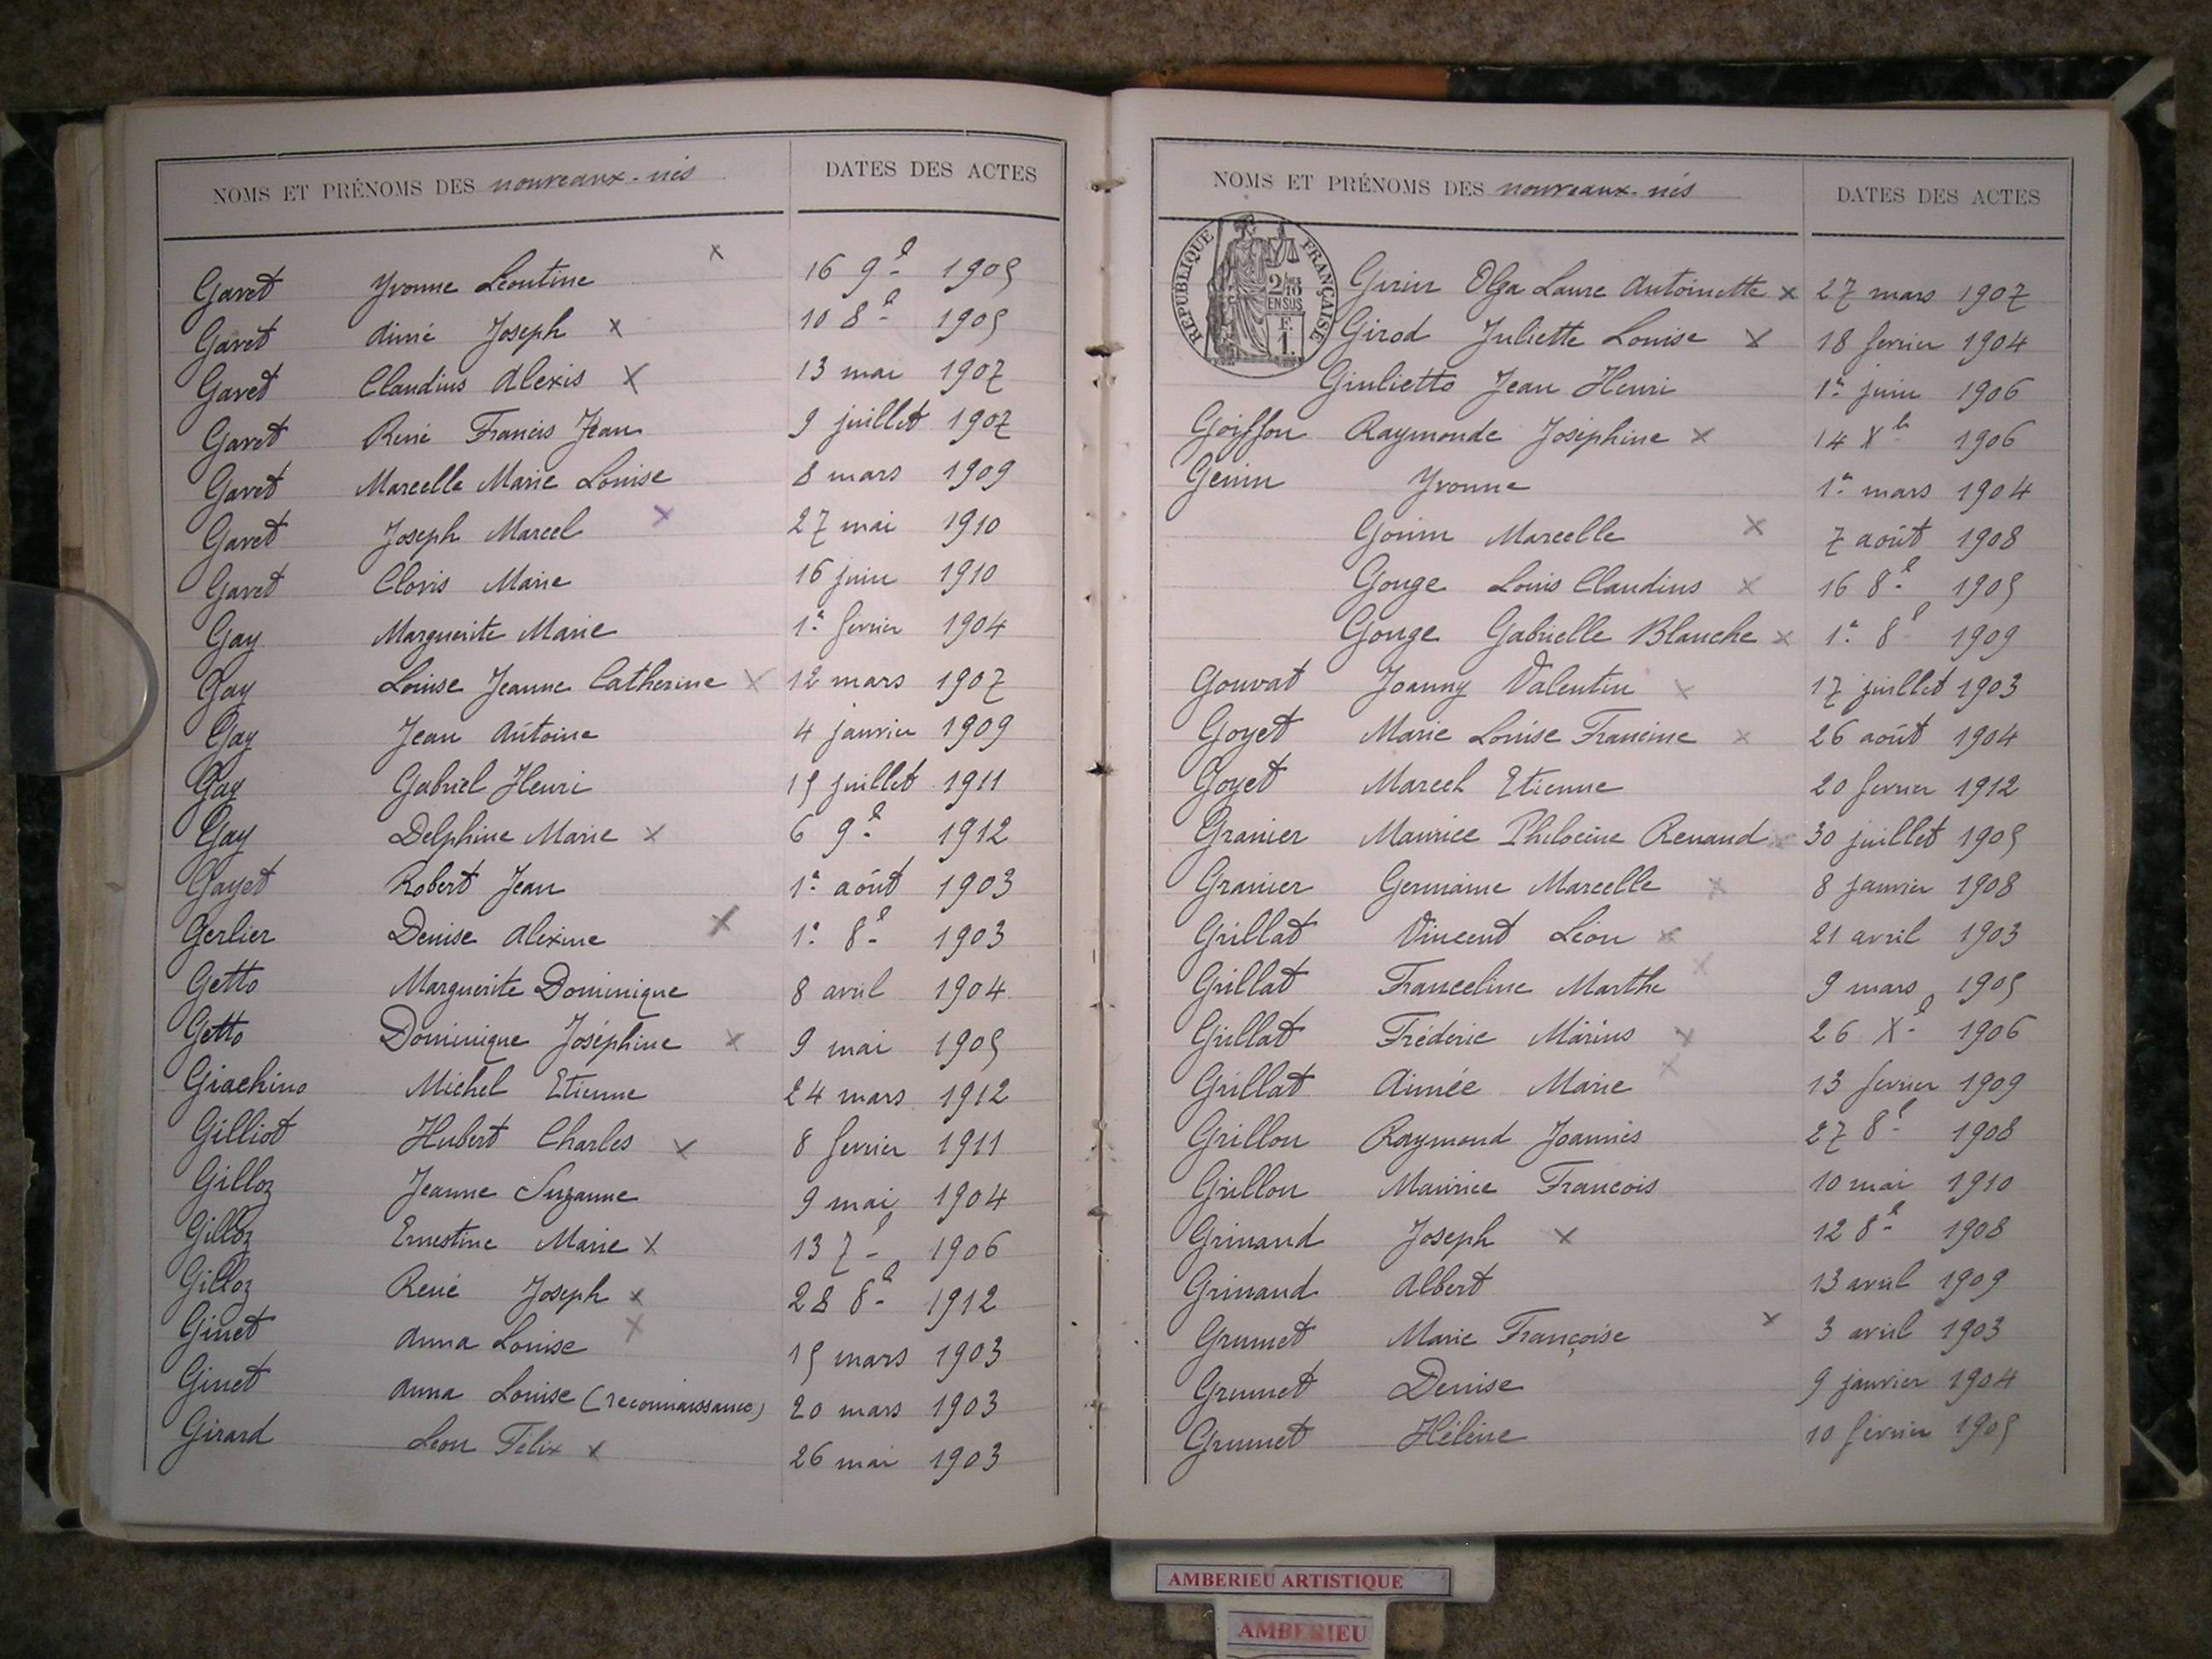 NOMS ET PRÉNOMS DES nouveaux-nés DATES DES ACTES
Gavet Yvonne Léontine x 16 9e 1905
Gavet Aimé Joseph x 10 8e 1905
Gavet Claudius Alexis x 13 mai 1907
Gavet René Francis Jean 9 juillet 1907
Gavet Marcelle Marie Louise 8 mars 1909
Gavet Joseph Marcel x 27 mai 1910
Gavet Clovis Marie 16 juin 1910
Gay Marguerite Marie 1er février 1904
Gay Louise Jeanne Catherine x 12 mars 1907
Gay Jean Antoine 4 janvier 1909
Gay Gabriel Henri 15 juillet 1911
Gay Delphine Marie x 6 9e 1912
Gayet Robert Jean 1er août 1903
Gerlier Denise Alexine x 1er 8e 1903
Getto Marguerite Dominique 8 avril 1904
Getto Dominique Joséphine x 9 mai 1905
Giachino Michel Etienne 24 mars 1912
Gilliot Hubert Charles x 8 fevrier 1911
Gilloz Jeanne Suzanne 9 mai 1904
Gilloz Ernestine Marie x 13 7e 1906
Gilloz René Joseph x 28 8e 1912
Ginet Anna Louise x 15 mars 1903
Ginet Anna Louise (reconnaissance) 20 mars 1903
Girard Léon Félix x 26 mai 1903
NOMS ET PRÉNOMS DES nouveaux-nés DATES DES ACTES
RÉPUBLIQUE FRANÇAISE
2/10 EN SUS
F. 1.
Olga Laure Antoinette x 27 mars 1907
Girod Juliette Louise x 18 fevrier 1904
Giulietto Jean Henri 1er juin 1906
Goiffon Raymonde Joséphine x 14 Xb 1906
Genin Yvonne 1er mars 1904
Gonin Marcelle x 7 août 1908
Gouge Louis Claudius x 16 8e 1905
Gouge Gabrielle Blanche x 1er 8e 1909
Gouvat Joanny Valentin x 17 juillet 1903
Goyet Marie Louise Francine x 26 août 1904
Goyet Marcel Etienne 20 fevrier 1912
Granier Maurice Renaud x 30 juillet 1905
Granier Germaine Marcelle x 8 janvier 1908
Grillat Vincent Léon x 21 avril 1903
Grillat Franceline Marthe x 9 mars 1905
Grillat Fréderic Marius x 26 Xe 1906
Grillat Aimée Marie x 13 fevrier 1909
Grillon Raymond Joannès 27 8e 1908
Grillon Maurice Francois 10 mai 1910
Grinand Joseph x 12 8e 1908
Grinand Albert 13 avril 1909
Grumet Marie Françoise x 3 avril 1903
Grumet Denise 9 janvier 1904
Grumet Hélène 10 février 1905
AMBERIEU ARTISTIQUE
AMBERIEU